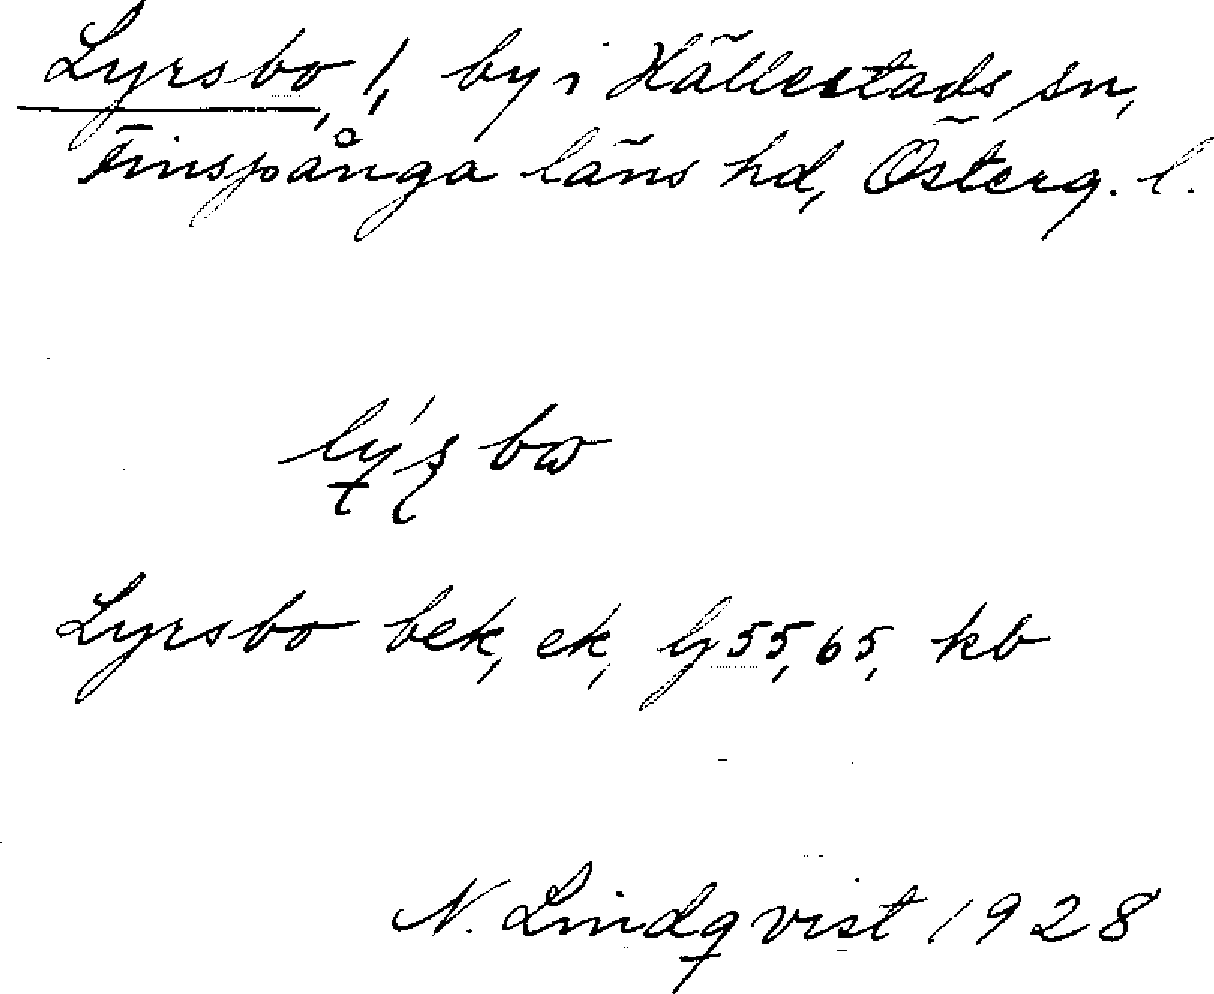 Lyrsbo, 1, by i Hällestads sn,
Finspånga läns hd, Österg. l.
Lyrsbo bek, ek, lg 55, 65, kb
N. Lindqvist 1928